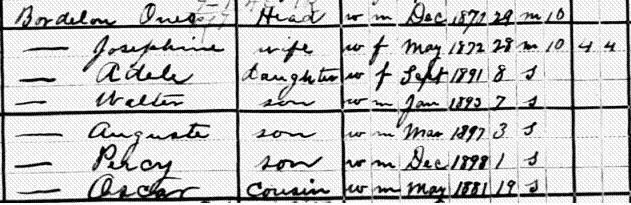 Bordelon Ones Head w m Dec 1870 29 m 10
— Josephine wife w f May 1872 28 m 10 4 4
— Adele daughter w f Sept 1891 8 s
— Walter son w m Jan 1893 7 s
— Auguste son w m Mar 1897 3 s
— Percy son w m Dec 1898 1 s
— Oscar cousin w m May 1881 19 s